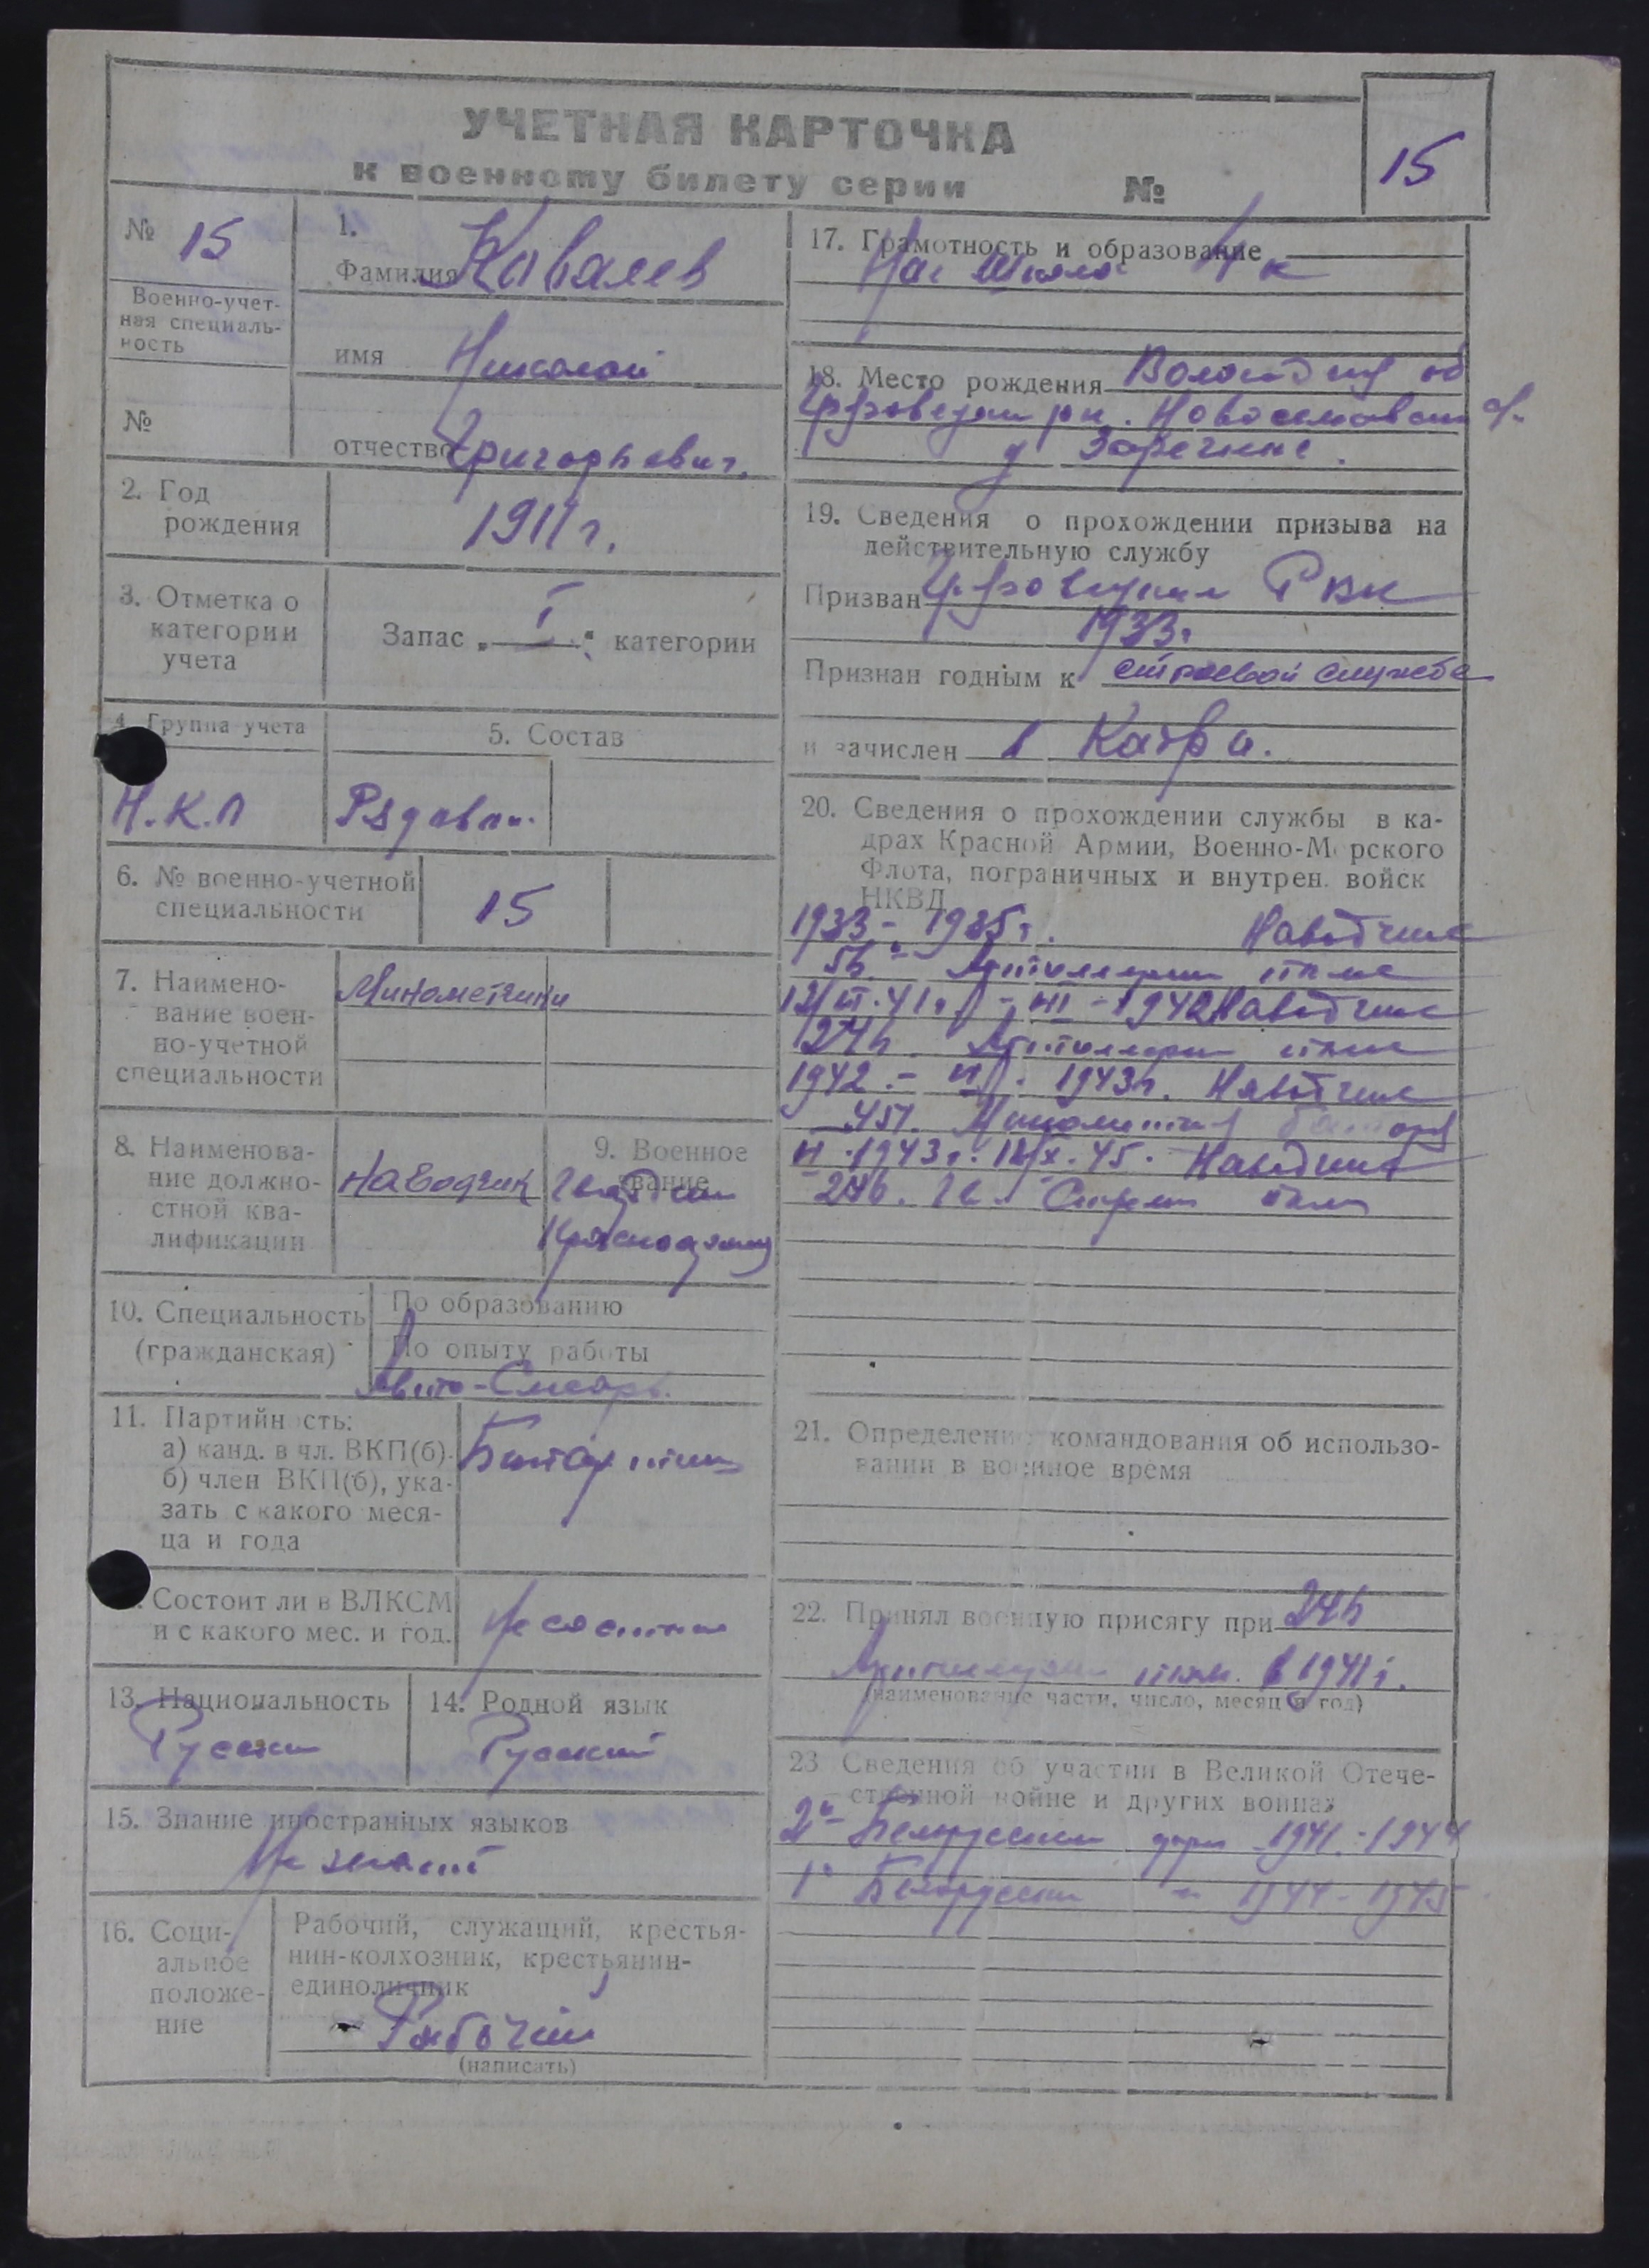 УЧЕТНАЯ КАРТОЧКА
к военному билету серии №
15
№ 15
Военно-учет-
ная специаль-
ность
№
1.
Фамилия Ковалев
имя Николай
отчество Григорьевич.
2. Год
рождения
1911 г.
3. Отметка о
категории
учета
Запас „ I “ категории
4. Группа учета
Н.К.О
5. Состав
Рядовой
6. № военно-учетной
специальности
15
7. Наимено-
вание воен-
но-учетной
специальности
Минометчики
8. Наименова-
ние должно-
стной ква-
лификации
Наводчик
9. Военное
звание
Гвардии
Красноармеец
10. Специальность
(гражданская)
По образованию
По опыту работы
Авто-Слесарь.
11. Партийность:
а) канд. в чл. ВКП(б).
б) член ВКП(б), ука-
зать с какого меся-
ца и года
Состоит ли в ВЛКСМ
и с какого мес. и год.
Не состоит
13. Национальность
Русский
14. Родной язык
Русский
15. Знание иностранных языков
Не знает
16. Соци-
альное
положе-
ние
Рабочий, служащий, крестья-
нин-колхозник, крестьянин-
единоличник
Рабочий
(написать)
17. Грамотность и образование
Нач Школа 4 к
18. Место рождения Вологодская об
рн.
д Заречье.
19. Сведения о прохождении призыва на
действительную службу
Призван РВК
1933 г
Признан годным к строевой службе
и зачислен в Кадры.
20. Сведения о прохождении службы в ка-
драх Красной Армии, Военно-Морского
Флота, пограничных и внутрен. войск
НКВД
1933 - 1935 г. Наводчик
56 Артиллерии полк
1942 Наводчик
Артиллерии полк
1942 - 1943 г. Наводчик
1943 г. 45. Наводчик
Стрелк полк
21. Определение командования об использо-
вании в военное время
22. Принял военную присягу при
Артиллерии полк. в 1941 г.
(наименование части, число, месяц и год)
23 Сведения об участии в Великой Отече-
ственной войне и других войнах
2й Белорусский фрон 1941 - 1944
1й Белорусский -"- 1944 - 1945